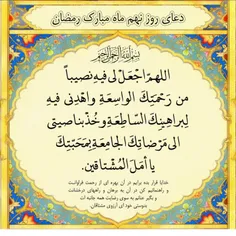 دعای روز نهم ماه مبارک رمضان
بسم الله الرحمن الرحیم
اللهم اجْعَل لی فیهِ نصیباً
من رَحْمَتِکَ الواسِعَةِ واهْدِنی فیهِ
لِبراهینِکَ السّاطِعَةِ وخُذْ بناصیتی
الی مَرْضاتِکَ الجامِعَةِ بِمَحَبّتِکَ
یا اَمَلَ المُشْتاقین
خدایا قرار بده برایم در آن بهره ای از رحمت فراوانت
و راهنمائیم کن در آن به برهان و راههای درخشانت
و بگیر عنانم به سوی رضایت همه جانبه ات
بدوستی خود ای آرزوی مشتاقان